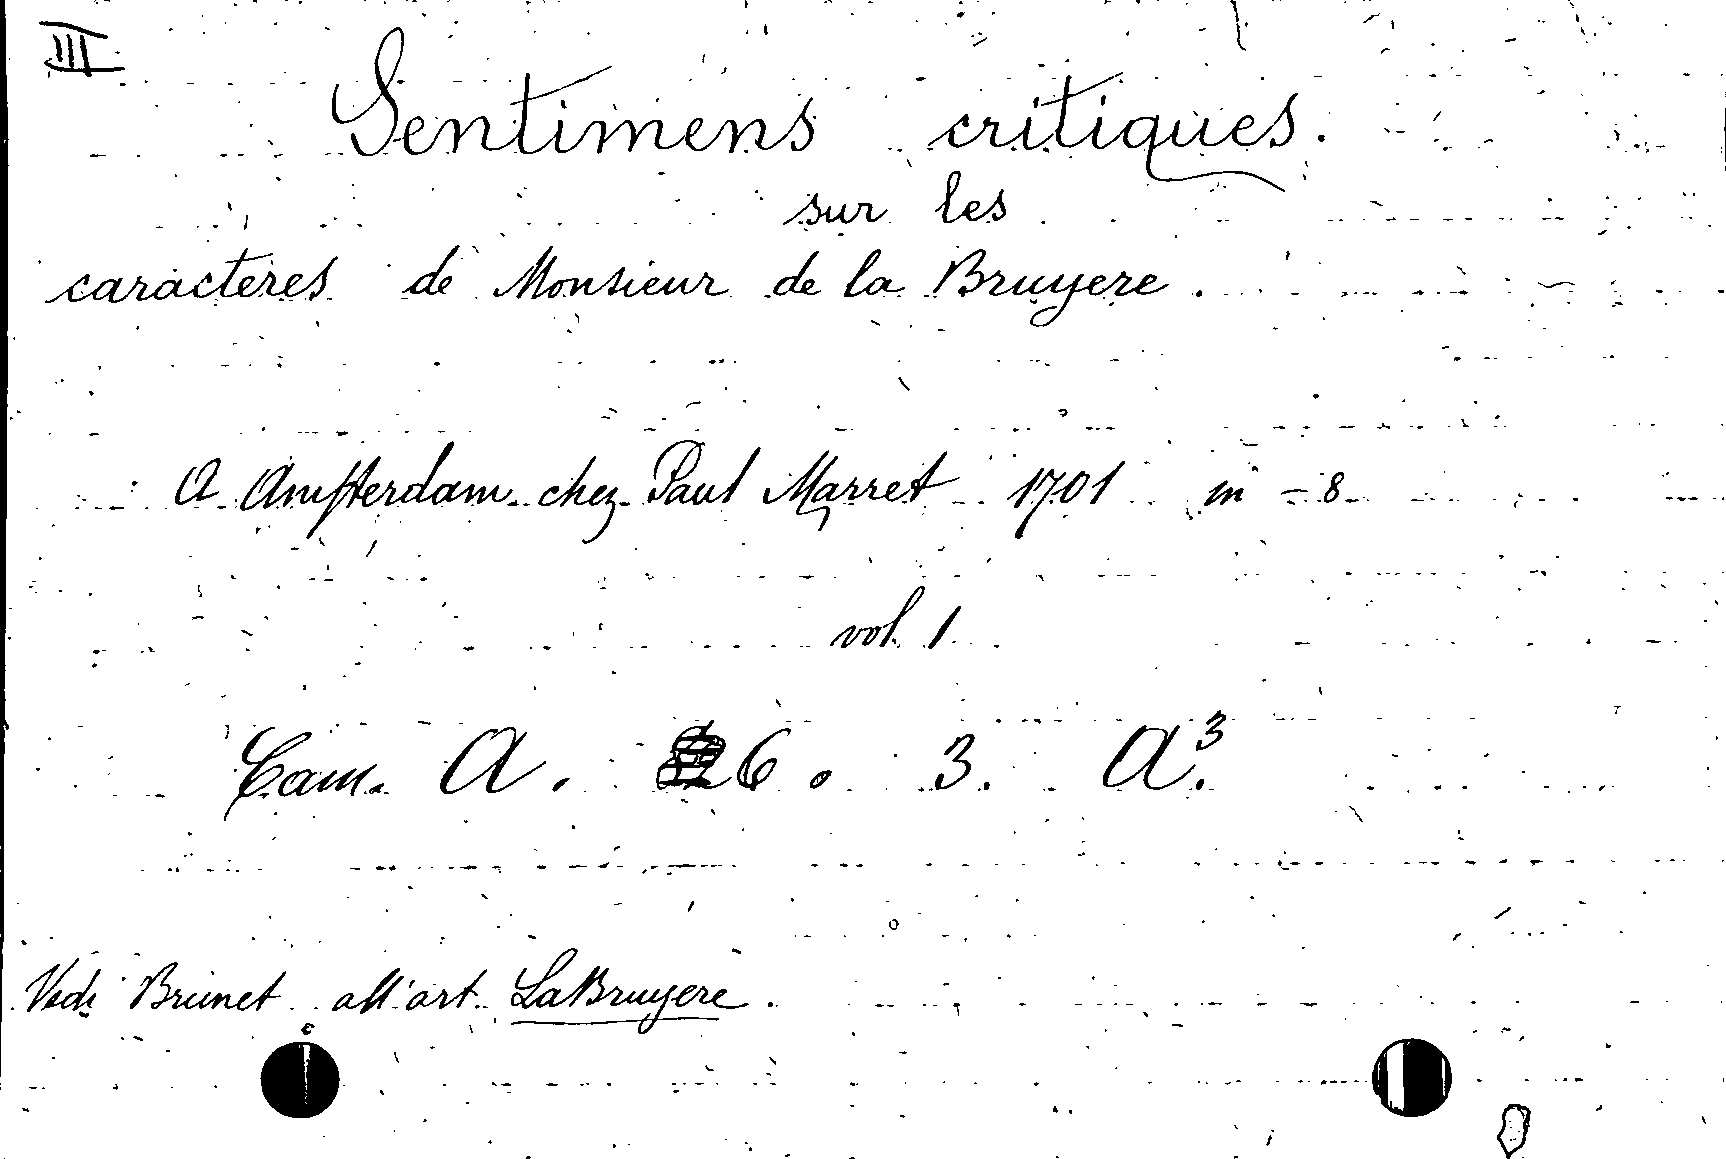 III
Sentimens critiques.
sur les
caracteres de Monsieur de la Bruyere.
A Amsterdam chez Paul Marret 1701 in - 8
vol. 1
Cam. A. 6. 3. A.³
Vedi Brunet all'art. LaBruyere.